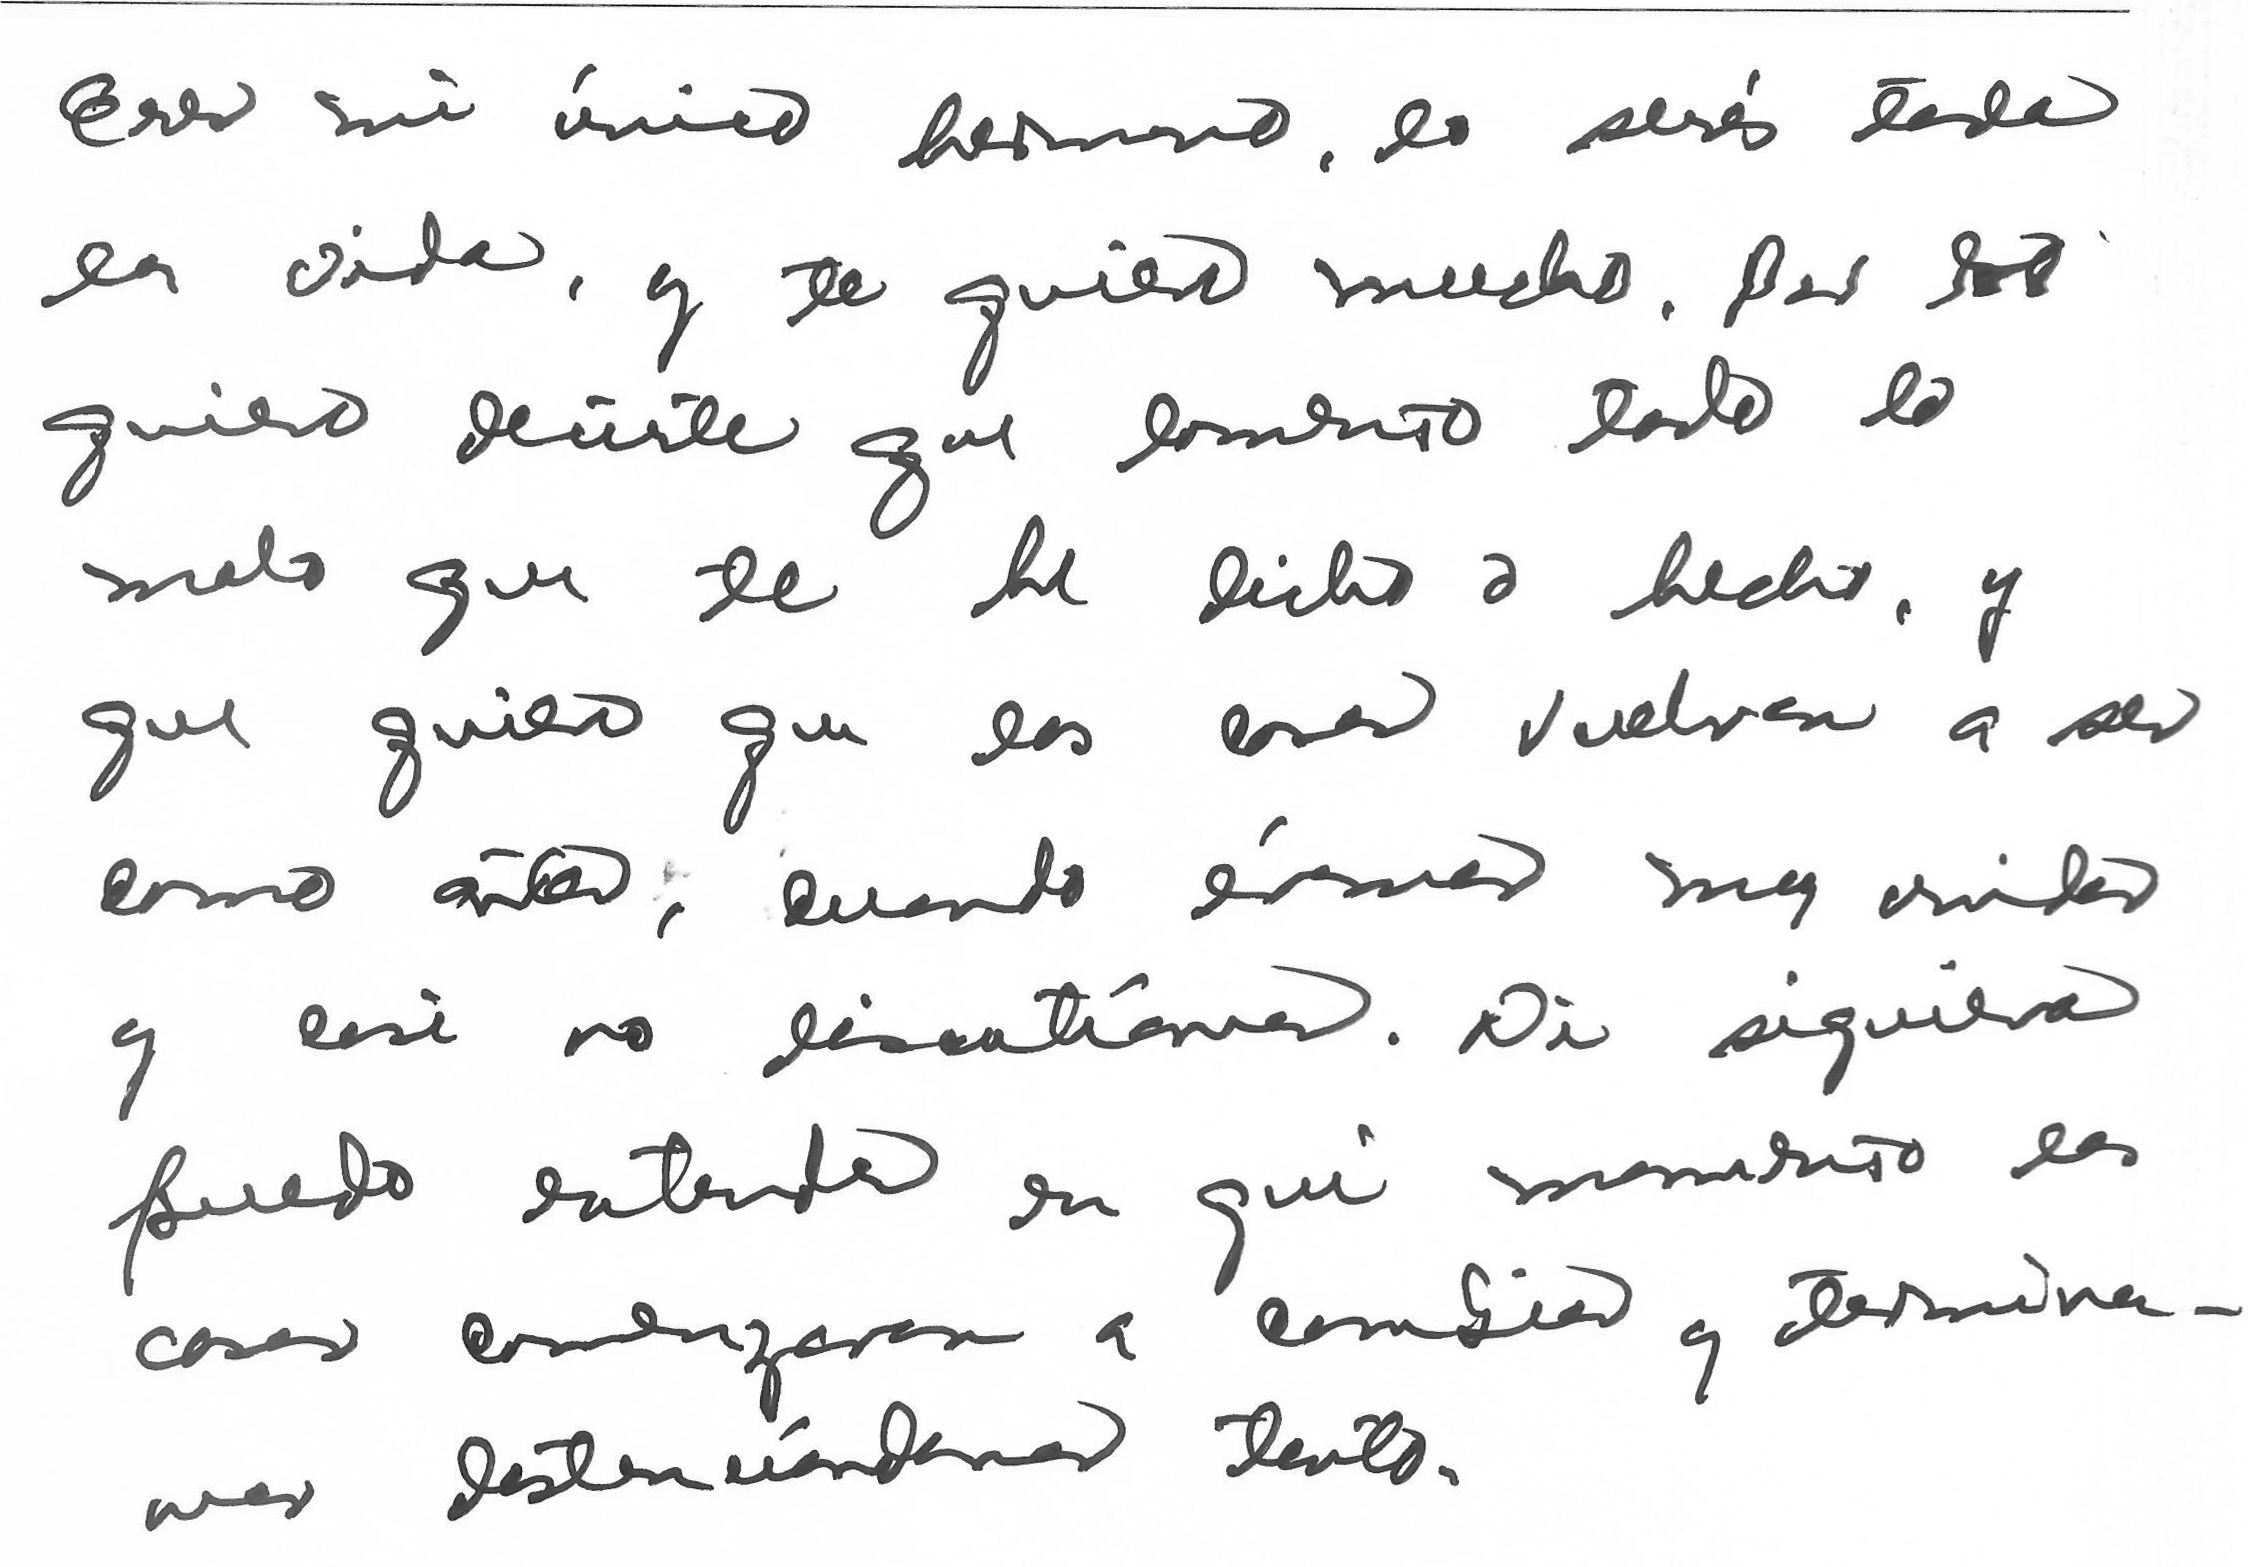 Eres mi único hermano, lo serás toda
la vida, y te quiero mucho. Por eso
quiero decirte que lamento todo lo
malo que te he dicho o hecho, y
que quiero que las cosas vuelvan a ser
como antes, cuando éramos muy unidos
y casi no discutíamos. Ni siquiera
puedo entender en qué momento las
cosas comenzaron a cambiar y termina-
mos distanciándonos tanto.